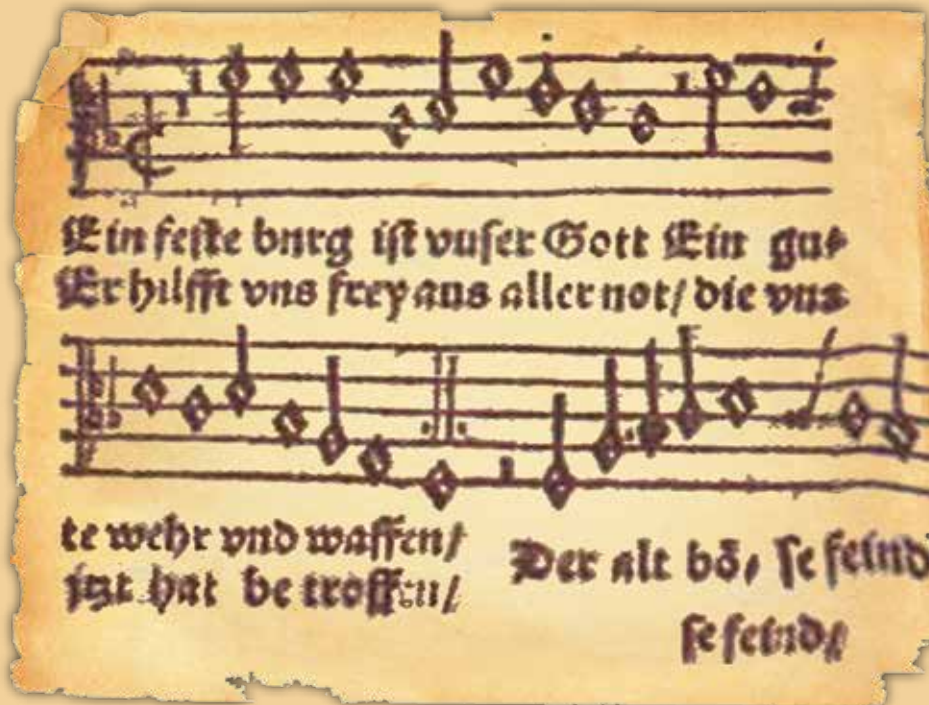 Ein feste burg ist vnser Gott Ein gu⸗
Er hilfft vns frey aus aller not/ die vns
te wehr vnd waffen/
jtzt hat be troffen/
Der alt bö⸗ se feind
se feind/